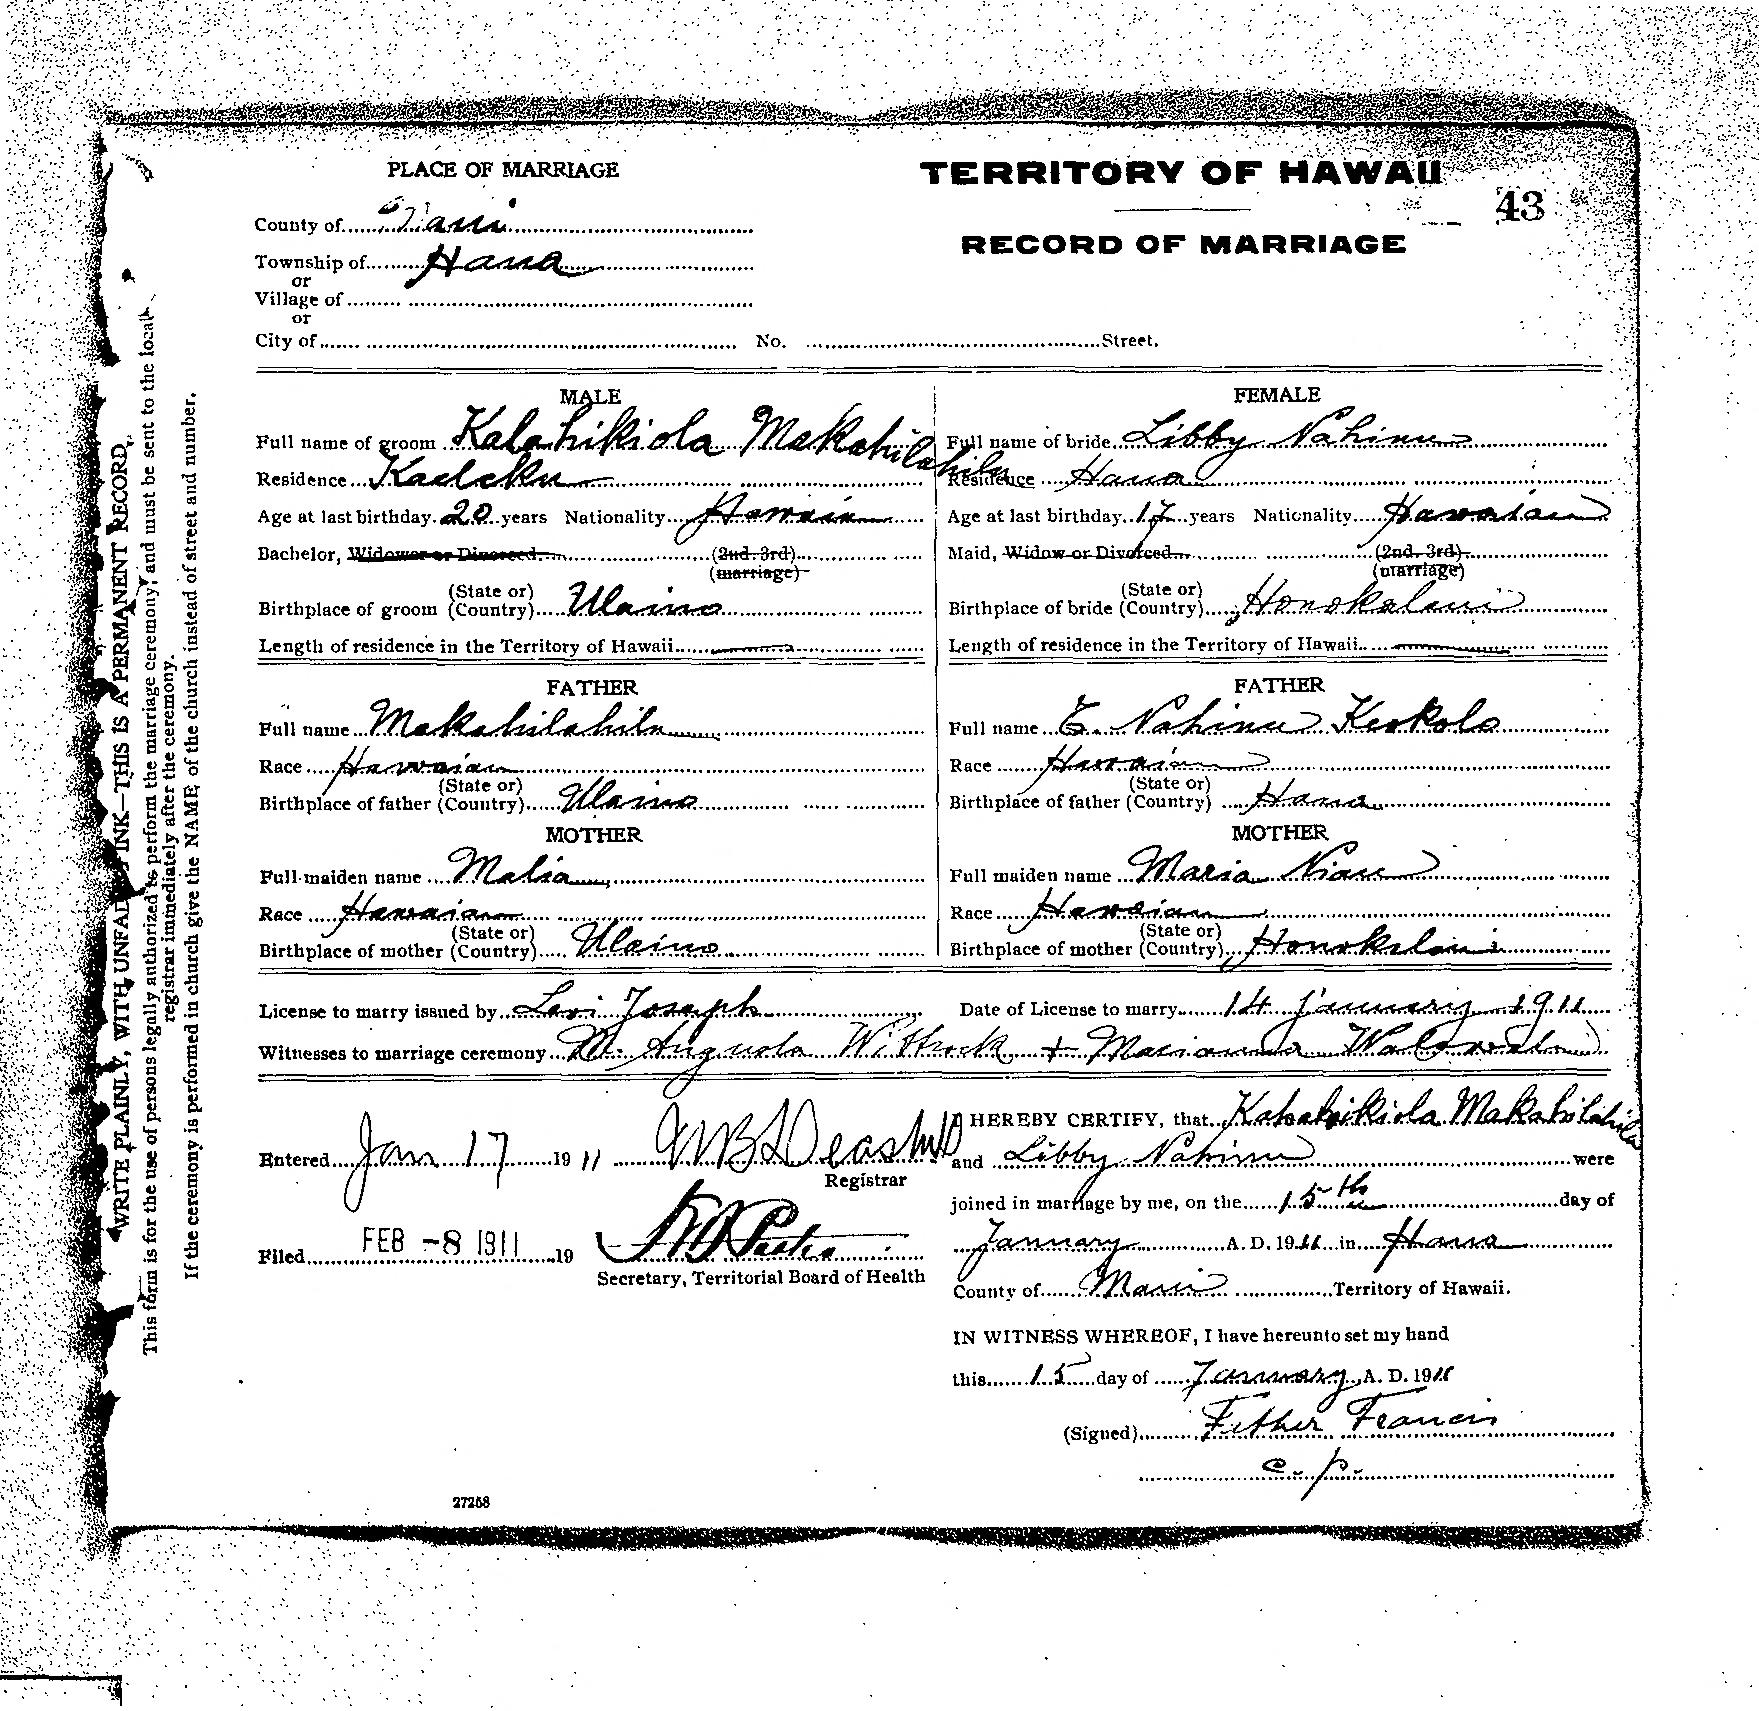 PLACE OF MARRIAGE
TERRITORY OF HAWAII
43
RECORD OF MARRIAGE
County of Maui
Township of Hana
or
Village of
or
City of No. Street.
MALE
Full name of groom Kalahikiola Makahilahila
Residence Kaeleku
Age at last birthday 20 years Nationality Hawaian
Bachelor, Widower or Divorced (2nd, 3rd)
(marriage)
(State or)
Birthplace of groom (Country) Ulaino
Length of residence in the Territory of Hawaii
FEMALE
Full name of bride Libby Nahinu
Residence Hana
Age at last birthday 17 years Nationality Hawaian
Maid, Widow or Divorced (2nd, 3rd)
(marriage)
(State or)
Birthplace of bride (Country) Honokalani
Length of residence in the Territory of Hawaii
FATHER
Full name Makahilahila
Race Hawaian
(State or)
Birthplace of father (Country) Ulaino
MOTHER
Full maiden name Malia
Race Hawaian
(State or)
Birthplace of mother (Country) Ulaino
FATHER
Full name E. Nahinu Keokolo
Race Hawaian
(State or)
Birthplace of father (Country) Hana
MOTHER
Full maiden name Maria Niau
Race Hawaian
(State or)
Birthplace of mother (Country) Honokalani
License to marry issued by Levi Joseph Date of License to marry 14 January 1911
Witnesses to marriage ceremony M. Augusta Wittrock +
Entered Jan 17 1911
Registrar
Filed FEB -8 1911 19
Secretary, Territorial Board of Health
I HEREBY CERTIFY, that Kahahikiola Makahilahila
and Libby Nahinu were
joined in marriage by me, on the 15th day of
January A. D. 1911 in Hana
County of Maui Territory of Hawaii.
IN WITNESS WHEREOF, I have hereunto set my hand
this 15 day of January A. D. 1911
(Signed) Father Francis
c. p.
27258
WRITE PLAINLY, WITH UNFADING INK—THIS IS A PERMANENT RECORD.
This form is for the use of persons legally authorized to perform the marriage ceremony, and must be sent to the local
registrar immediately after the ceremony.
If the ceremony is performed in church give the NAME of the church instead of street and number.